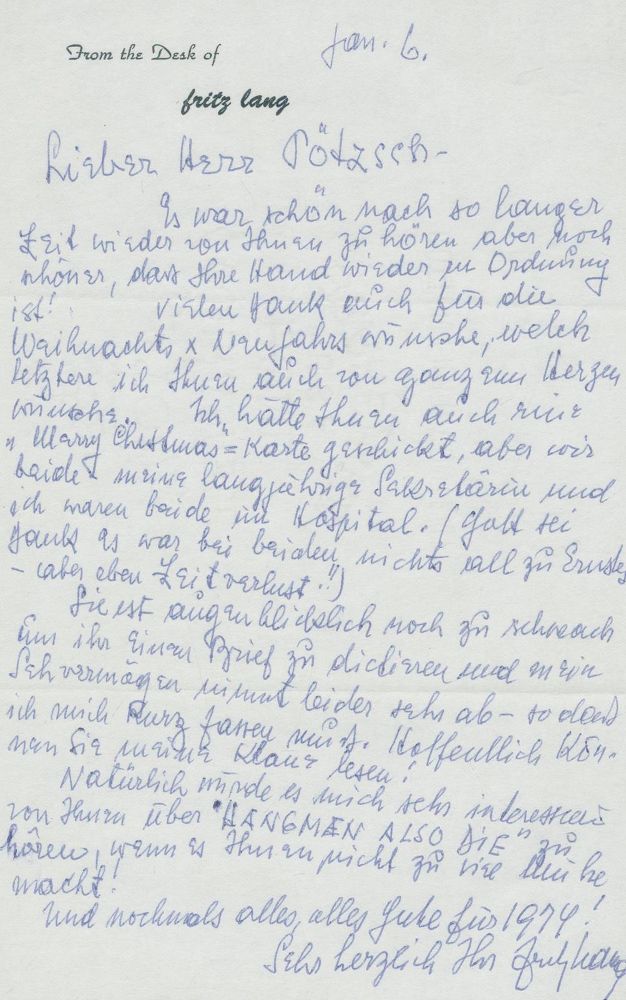 From the Desk of
fritz lang
Jan. 6.
Lieber Herr Pötzsch –
Es war schön nach so langer
Zeit wieder von Ihnen zu hören aber noch
schöner, dass Ihre Hand wieder in Ordnung
ist! Vielen Dank auch für die
Weihnachts x Neujahrs wünsche, welch
letztere ich Ihnen auch von ganzem Herzen
wünsche. Ich hätte Ihnen auch eine
"Merry Christmas = Karte geschickt, aber wir
beide – meine langjährige Sekretärin und
ich waren beide im Hospital. (Gott sei
Dank es war bei beiden nichts all zu Ernstes
– aber eben Zeitverlust!!)
Sie ist augenblicklich noch zu schwach
um ihr einen Brief zu dictieren und mein
Sehvermögen nimmt leider sehr ab – so dass
ich mich kurz fassen muss. Hoffentlich kön-
nen Sie meine Klaue lesen!
Natürlich würde es mich sehr interessieren
von Ihnen über "HANGMEN ALSO DIE" zu
hören, wenn es Ihnen nicht zu viel Mühe
macht!
Und nochmals alles, alles Gute für 1974!
Sehr herzlich Ihr Fritz Lang